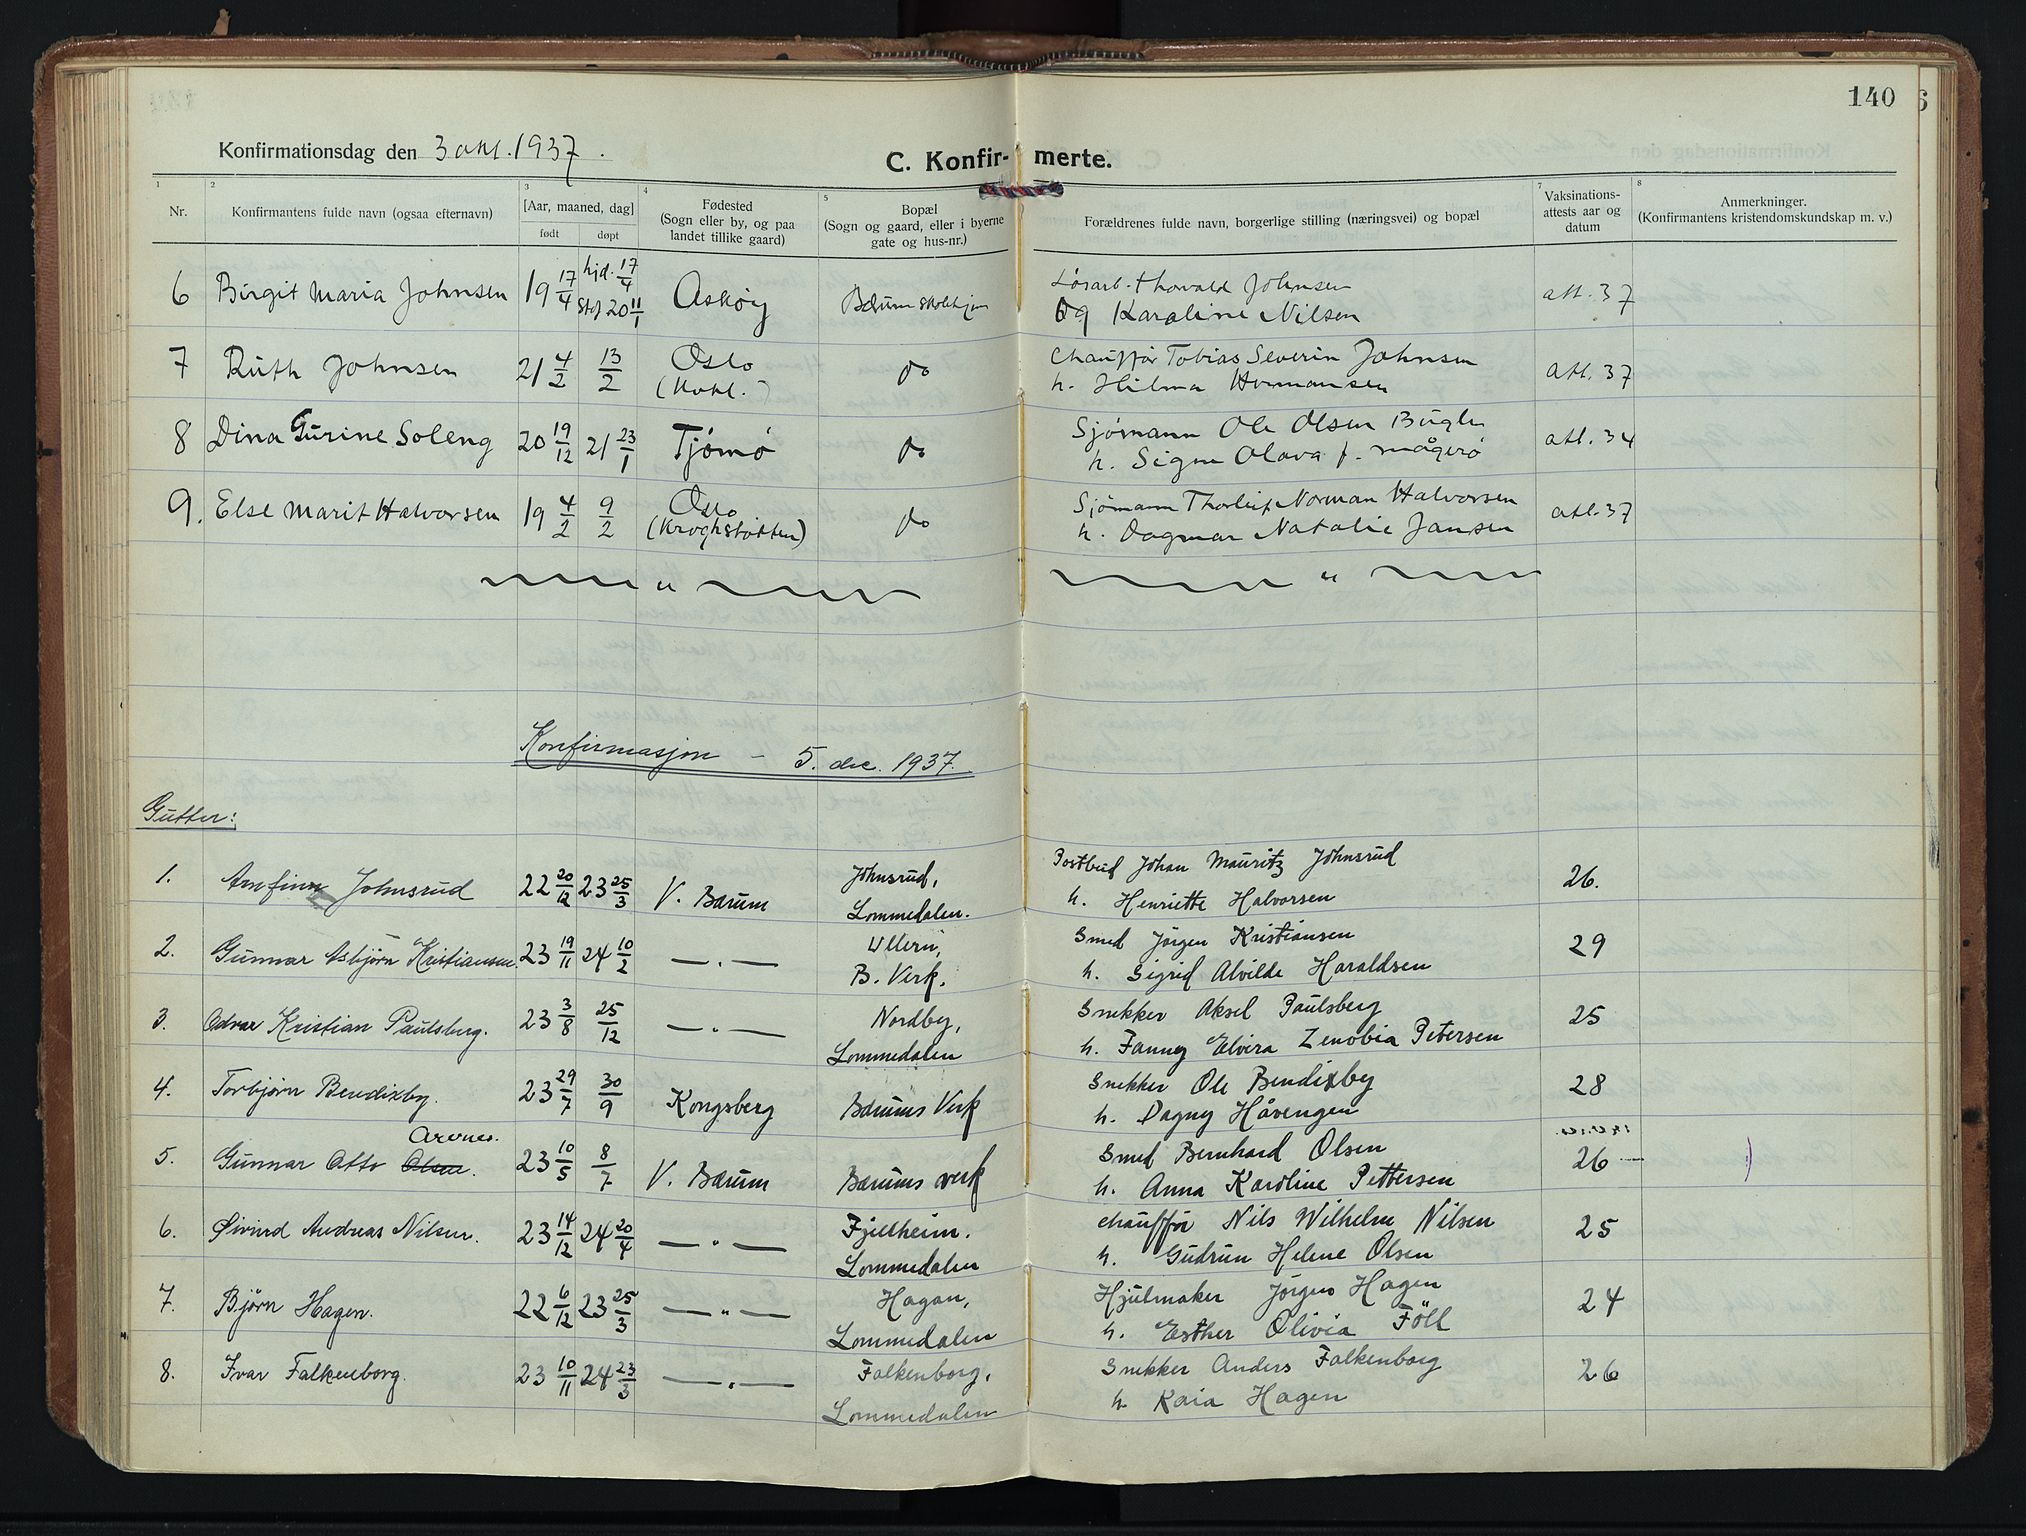 140
Konfirmationsdag den 3 okt. 1937.
C. Konfir- merte.
1 2 3 4 5 7 8
Nr. Konfirmantens fulde navn (ogsaa efternavn) [Aar, maaned, dag] født døpt Fødested (Sogn eller by, og paa landet tillike gaard) Bopæl (Sogn og gaard, eller i byerne gate og hus-nr.) Forældrenes fulde navn, borgerlige stilling (næringsvei) og bopæl Vaksinations-attests aar og datum Anmerkninger. (Konfirmantens kristendomskundskap m. v.)
6 Birgit Maria Johnsen 19 17/4 hjd. 17/4 Stf 20 11/1 Askøy Bærum skolehjem Løsarb. Thorvald Johnsen att. 37
og Karoline Nilsen
7 Ruth Johnsen 21 4/2 13/2 Oslo do Chauffør Tobias Severin Johnsen att. 37
h. Hilma Hermansen
8 Dina Gurine Soleng 20 19/12 21 23/1 Tjømø do Sjømann Ole Olsen att. 34
h. Signe Olava f. Mågerø
9. Else Marit Halvorsen 19 4/2 9/2 Oslo (Kroghstøtten) do Sjømann Thorleif Norman Halvorsen att. 37
h. Dagmar Natalie Jansen
"
"
Konfirmasjon - 5. dec. 1937.
Gutter:
1. Arnfinn Johnsrud 22 20/12 23 25/3 V. Bærum Johnsrud, Lommedalen. Postbud Johan Mauritz Johnsrud 26.
h. Henriette Halvorsen
2. Gunnar Asbjørn Kristiansen 23 19/11 24 10/2 — " — Ullern, B. Verk. Smed Jørgen Kristiansen 29
h. Sigrid Alvilde Haraldsen
3. Odvar Kristian Paulsberg. 23 3/8 25/12 — " — Nordby, Lommedalen Snekker Aksel Paulsberg 25
h. Fanny Elvira Zenobia Petersen
4. Torbjørn Bendixby. 23 29/7 30/9 Kongsberg Bærums Verk Snekker Ole Bendixby 28
h. Dagny Håvengen
Arones.
5. Gunnar Otto Olsen. 23 10/5 8/7 V. Bærum Bærums verk Smed Bernhard Olsen 26 —
h. Anna Karoline Pettersen
6. Øivind Andreas Nilsen. 23 14/12 24 20/4 — " — Fjellheim. Lommedalen Chauffør Nils Wilhelm Nilsen 25
h. Gudrun Helene Olsen
7. Bjørn Hagen. 22 6/12 23 25/3 — " — Hagan, Lommedalen Hjulmaker Jørgen Hagen 24
h. Esther Olivia Föll
8. Ivar Falkenborg. 23 10/11 24 23/3 — " — Falkenborg, Lommedalen Snekker Anders Falkenborg 26
h. Kaia Hagen